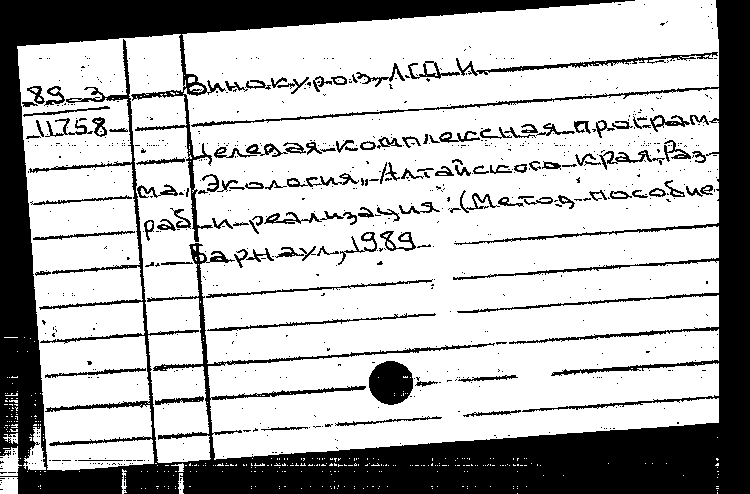 89-3
11758
Винокуров, И.
Целевая комплексная програм-
ма „Экология„ Алтайского края: Раз-
раб. и реализация: (Метод. пособие
Барнаул, 1989